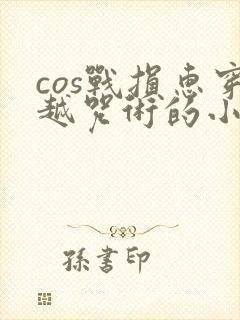 cos戰損惠穿
越咒術的小
孫書印